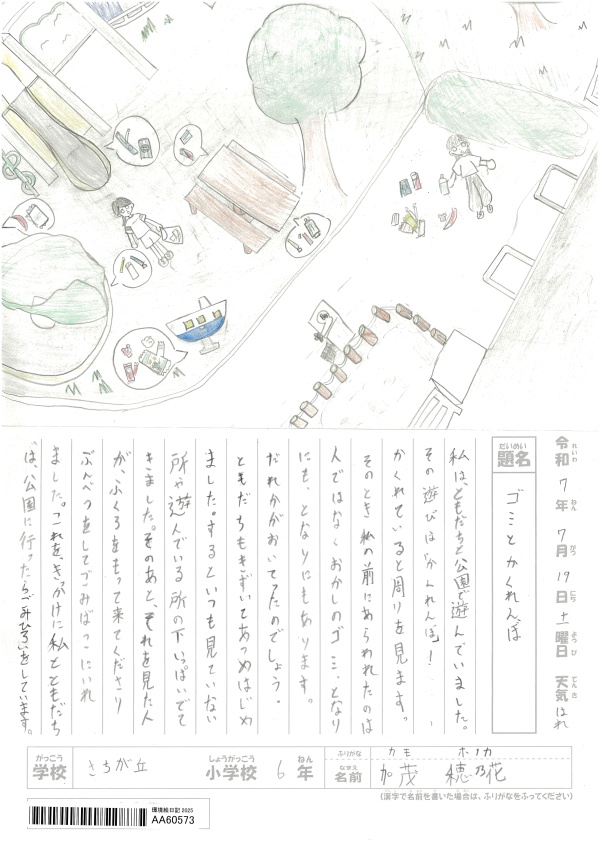 令和 7年 7月 19日 土曜日 天気 はれ
れいわ ねん がつ にち ようび てんき
だいめい
題名 ゴミとかくれんぼ
私は、ともだちと公園で遊んでいました。
その遊びは「かくれんぼ」!
かくれていると周りを見ます。
そのとき私の前にあらわれたのは
人ではなくおかしのゴミ。となり
にも、となりにもあります。
だれかがおいてったのでしょう。
ともだちもきずいてあつめはじめ
ました。するといつも見ていない
所や遊んでいる所の下いっぱいでて
きました。そのあと、それを見た人
が、ふくろをもって来てくださり
ぶんべつをしてごみばっこにいれ
ました。これを、きっかけに私とともだち
は、公園に行ったらごみひろいをしています。
がっこう しょうがっこう ねん ふりがな カモ ホノカ
学校 さちが丘 小学校 6年 なまえ 名前 加茂 穂乃花
(漢字で名前を書いた場合は、ふりがなをふってください)
環境絵日記 2025
AA60573